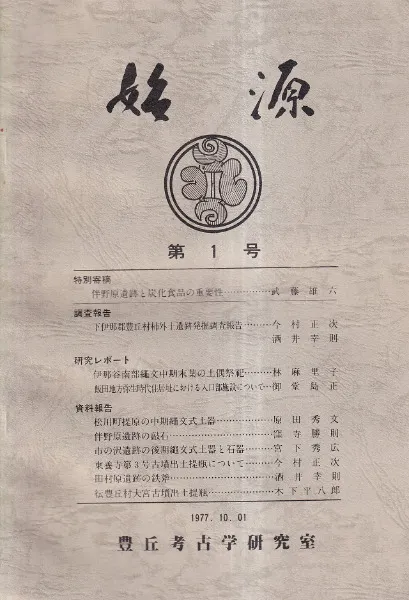 始源
第1号
特別寄稿
伴野原遺跡と炭化食品の重要性……………武藤雄六
調査報告
下伊那郡豊丘村柿外土遺跡発掘調査報告……今村正次
酒井幸則
研究レポート
伊那谷南部縄文中期末葉の土偶祭祀…………林麻里子
飯田地方弥生時代住居址における入口部施設について…御堂島正
資料報告
松川町提原の中期縄文式土器…………………原田秀文
伴野原遺跡の敲石………………………………窪寺勝則
市の沢遺跡の後期縄文式土器と石器…………宮下秀広
東養寺第3号古墳出土提瓶について…………今村正次
田村原遺跡の鉄斧………………………………酒井幸則
伝豊丘村大宮古墳出土提瓶……………………木下平八郎
1977.10.01
豊丘考古学研究室